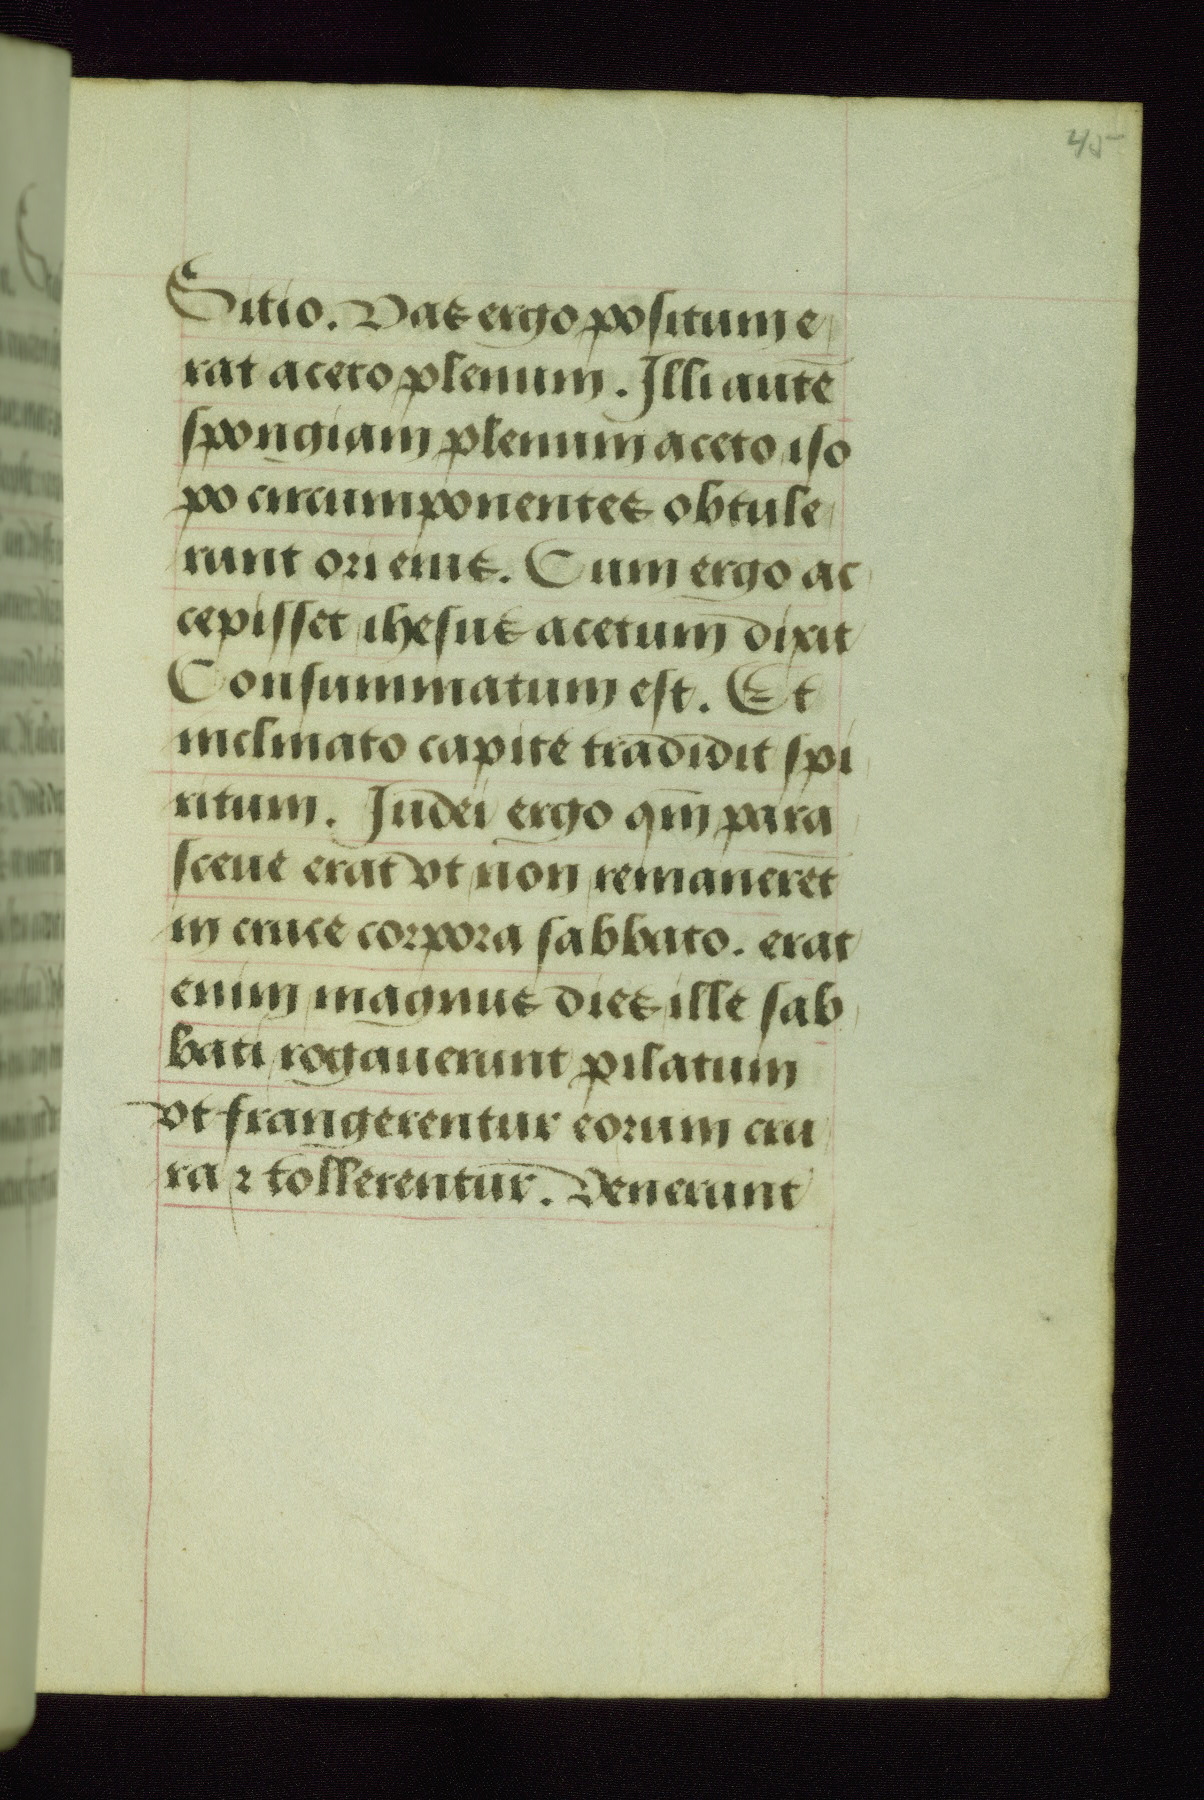 45
Sitio. Vas ergo positum e
rat aceto plenum. Illi autē
spongiam plenum aceto iso
po circumponentes obtule
runt ori eius. Cum ergo ac
cepisset ihesus acetum dixit
Consummatum est. Et
inclinato capite tradidit spi
ritum. Judei ergo qm̄ para
sceue erat vt non remanerēt
in cruce corpora sabbato. erat
enim magnus dies ille sab
bati rogauerunt pilatum
vt frangerentur eorum cru
ra ⁊ tollerentur. Venerunt